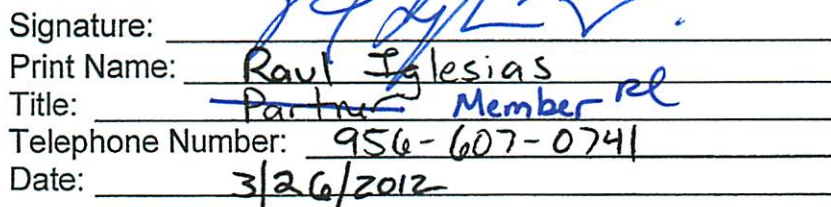 Signature:
Print Name: Raul Iglesias
Title: Partner Member RI
Telephone Number: 956-607-0741
Date: 3/26/2012